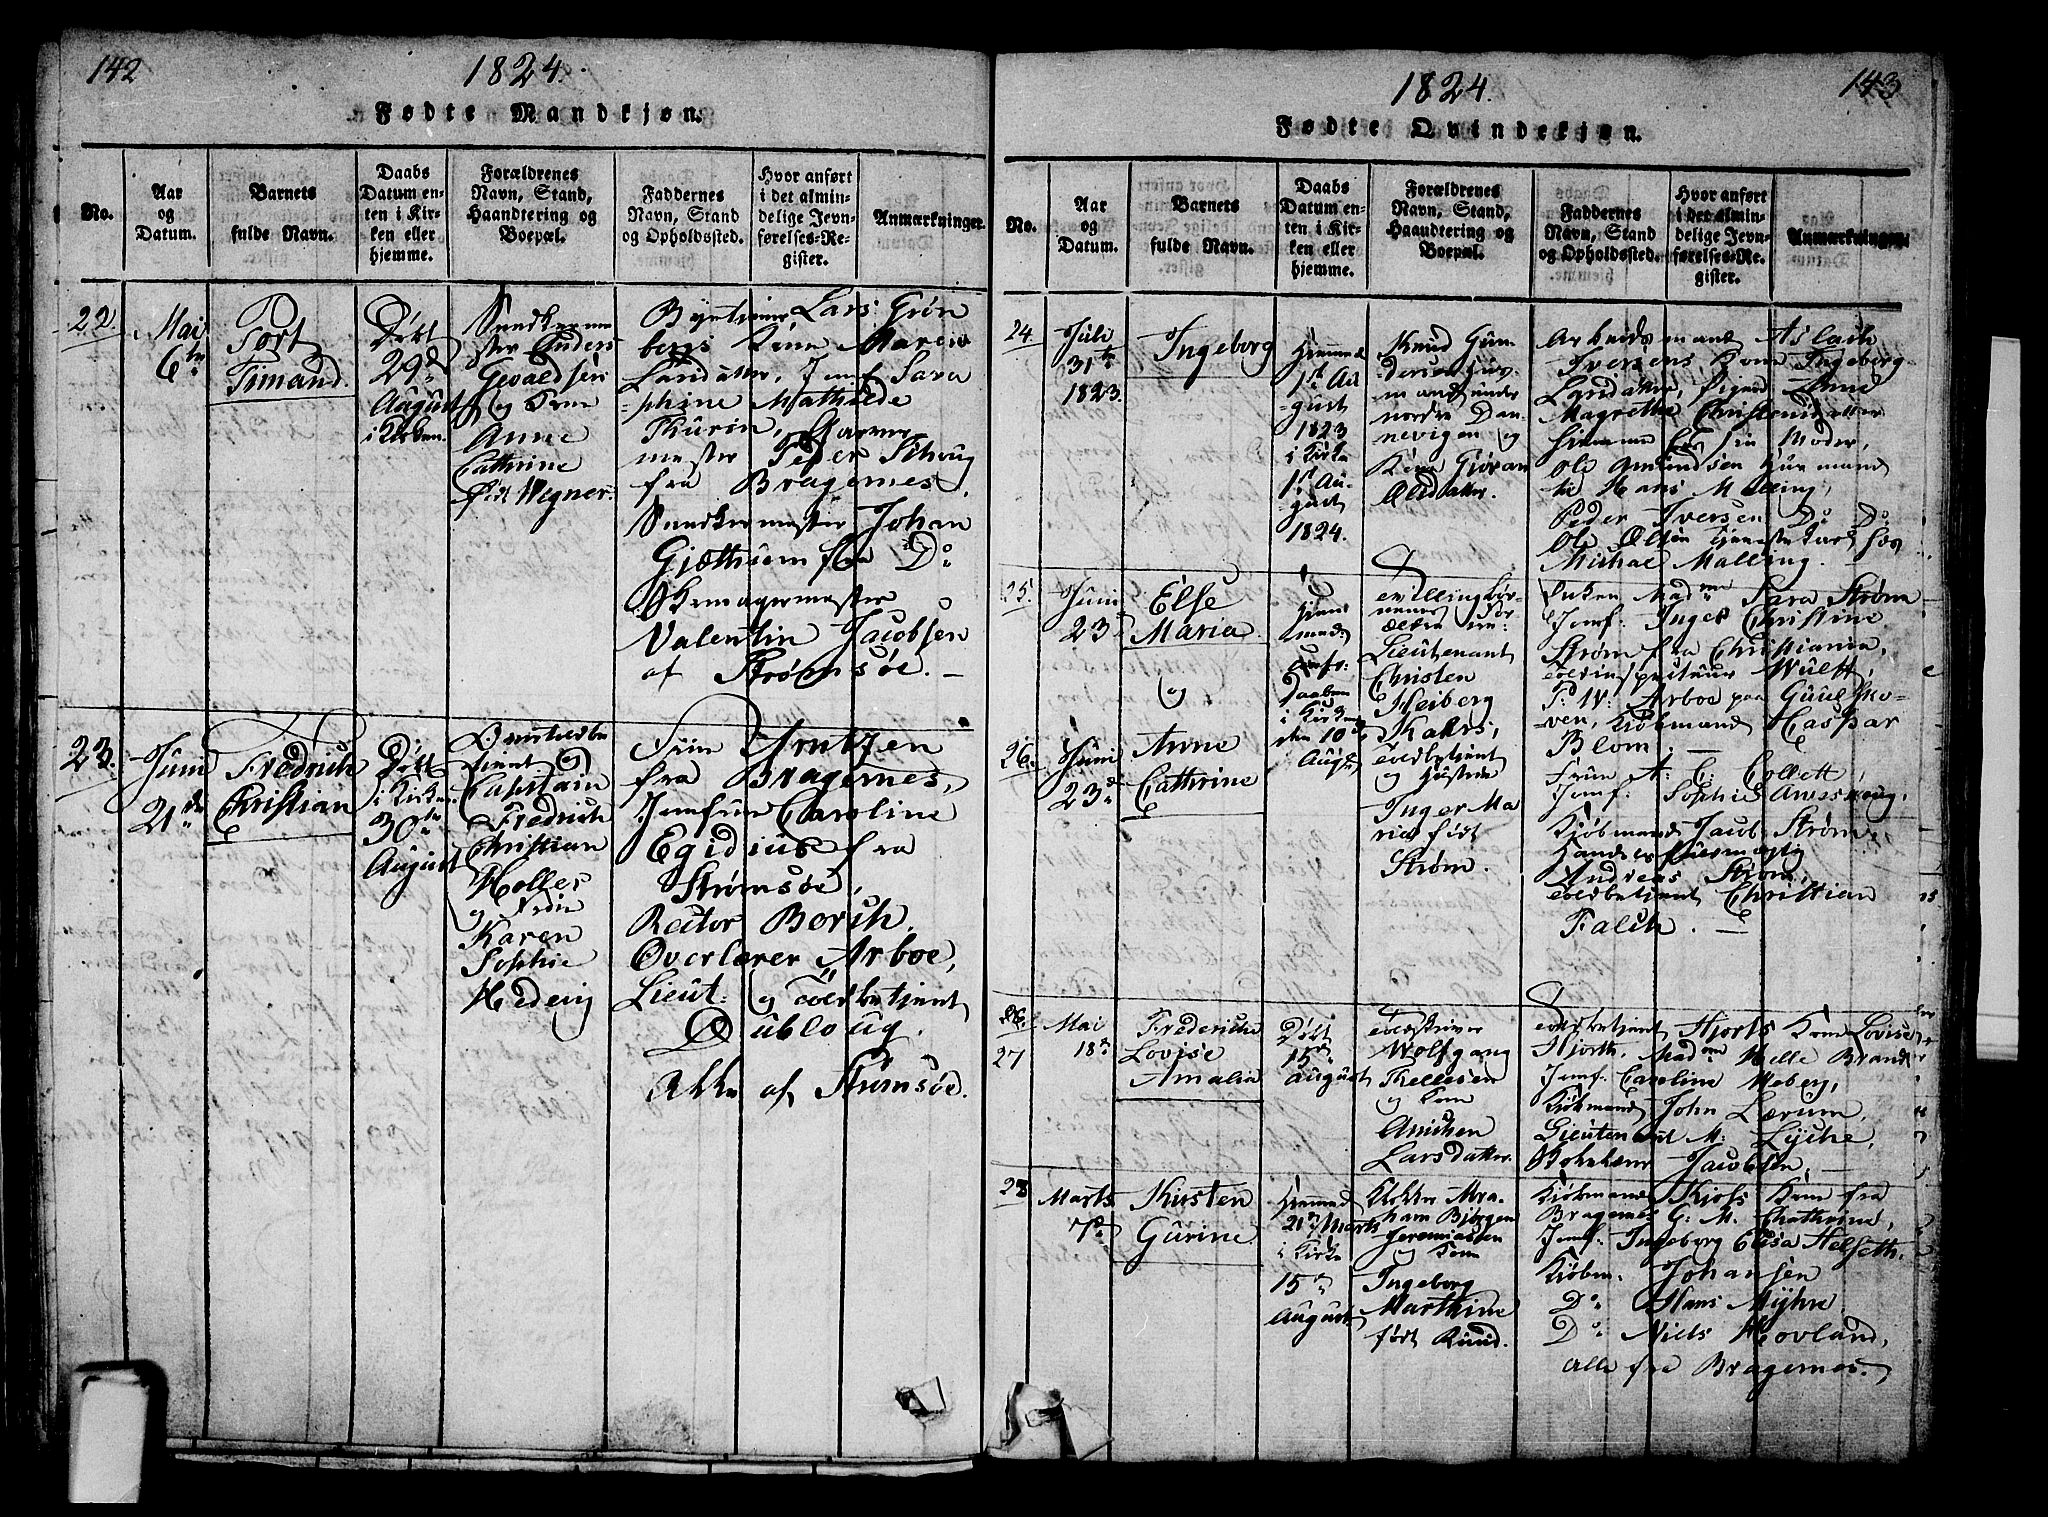 142
1824.
Fødte Mandkjøn.
No.
Aar
og
Datum.
Barnets
fulde Navn.
Daabs
Datum en-
ten i Kir-
ken eller
hjemme.
Forældrenes
Navn, Stand,
Haandtering og
Boepæl.
Faddernes
Navn, Stand
og Opholdssted.
Hvor anført
i det almin-
delige Jevn-
førelses-Re-
gister.
Anmærkninger.
22.
Mai
6te
Tort
Timand.
Døbt
29d
August
i Kirken.
Anders
Gevaldsen
og Kone
Anne
Cathrine
født Wegner.
Lars Grøn
bergs Kone Maren
Larsdatter, Jomf Sara
phine Mathilde
Thurin, Garver
mester Peder Schoug
fra Bragernes,
Snedkermester Johan
Gjøthsem fra Do
Skomagermester
Valentin Jacobsen
af Strømsøe. —
23.
Juni
21de
Fredrich
Christian
Døbt
i Kirken
30te
August
Capitain
Fredrich
Christian
Holler
og Frue
Karen
Sophie
Hedevig
Frue Arntzen
fra Bragernes,
Jomfrue Caroline
Egidius fra
Strømsøe,
Rector Borch,
Overlærer Arboe,
Lieut: og Toldbetjent
Dubloug.
Alle af Strømsøe.
143
1824.
Fødte Qvindekjøn.
No.
Aar
og
Datum.
Barnets
fulde Navn.
Daabs
Datum en-
ten i Kir-
ken eller
hjemme.
Forældrenes
Navn, Stand,
Haandtering og
Boepæl.
Faddernes
Navn, Stand
og Opholdssted.
Hvor anført
i det almin-
delige Jevn-
førelses-Re-
gister.
Anmærkninger.
24.
Juli
31te
1823.
Ingeborg
Hjemme
1st Au
gust
1823
i Kirke
1st Au-
gust
1824.
Knud Gun
dersen Huus
mand under
nordre Dan-
nevigen og
Kone Gjøran
Olsdatter.
Arbeidsmand Aslach
Iversens Kone Ingeborg
Larsdatter, Pigen Anne
Magrethe Christensdatter
hjemme hos sin Moder,
Ole Amundsen Huusmand
til Hans Malling,
Peder Iversen Do Do
Ole Olsen Tjenestekarl hos
Michael Malling.
25.
Juni
23
Else
Maria
og
26.
Juni
23d
Anne
Cathrine
Hjem
mede
Daaben
i Kirken
den 10de
August
Lieutenant
Christen
Heiberg
Kahrs,
Toldbetjent
og Hustrue
Inger Ma
ria født
Strøm.
Enken Madme Sara Strøm
Jomf: Inger Christine
Strøm fra Christiania,
Toldinspecteur Wulff
P. W. Arboe paa Guulsko-
ven, Kjøbmand Caspar
Blom. —
Frue A. C. Collett
Jomf: Sophie Amsskoug,
Kjøbmand Jacob Strøm
Handelsfuldmægtig
Andreas Strøm,
Toldbetjent Christian
Falch. —
27
Mai
18de
Frederiche
Lovise
Amalia
Døbt
15de
August
Wolfgang
Thellesen
og Kone
Anichen
Larsdatter.
Toldbetjent Hjorts Kone Lovise
Hjorth, Madme Helle Brandt
Jomf: Caroline Weberg,
Kjøbmand John Lærum,
Lieutenant M. Lyche,
Jacobsen. —
28
Marts
7de
Kirsten
Gurine
Hjemme
21de Marts
i Kirke
15de
August
Klokker Abra-
ham Bjørgen
Jeremiassen
og Kone
Ingeborg
Marthine
født Ruud.
Kjøbmand Kjøls Kone fra
Bragernes G. M. Chathrine,
Jomf: Ingeborg Elisa Helseth,
Kjøbm. Johansen
Do Hans Myhre
Do Niels Hovland,
alle fra Bragernes.